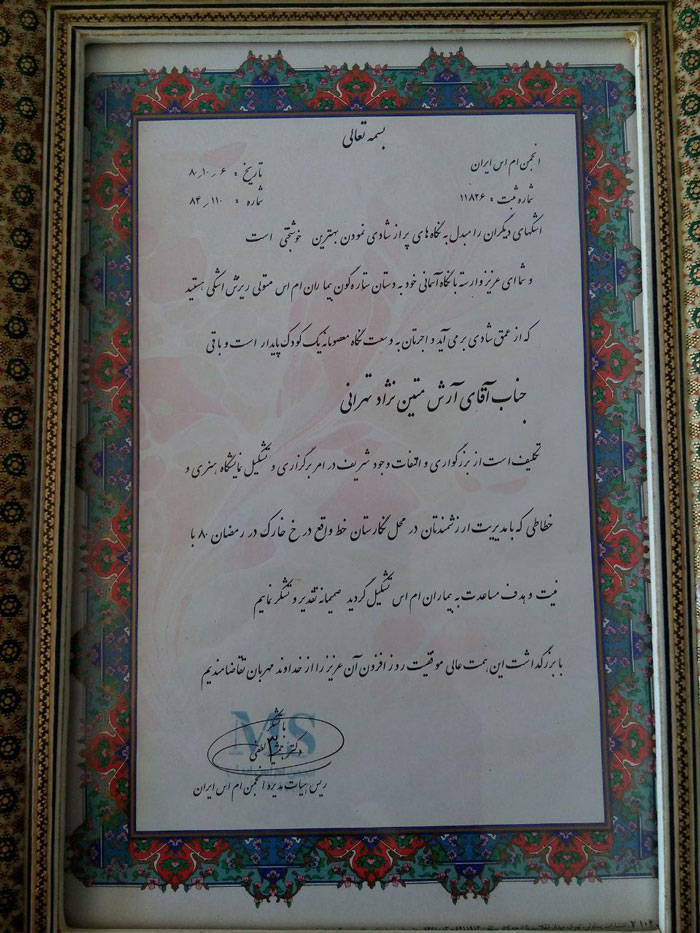 بسمه تعالی
انجمن ام اس ایران
تاریخ : ۸۰٫۱۰٫۶
شماره ثبت : ۱۱۸۲۶
شماره : ۸۴٫۱۱۰
اشکهای دیگران را مبدل به نگاه های پر از شادی نمودن بهترین خوشبختی است
و شما ای عزیز وارسته با نگاه آسمانی خود به دستان ستاره گون بیماران ام اس متولی ریزش اشکی هستید
که از عمق شادی برمی آید و اجرتان به وسعت نگاه معصومانه یک کودک پایدار است و باقی
جناب آقای آرش متین نژاد تهرانی
تکلیف است از بزرگواری و التفات وجود شریف در امر برگزاری و تشکیل نمایشگاه هنری و
خطاطی که با مدیریت ارزشمندتان در محل نگارستان خط واقع در خ خارک در رمضان ۸۰ با
نیت و هدف مساعدت به بیماران ام اس تشکیل گردید صمیمانه تقدیر و تشکر نمائیم
با بزرگداشت این همت عالی موفقیت روز افزون آن عزیز را از خداوند مهربان تقاضامندیم
MS
با تشکر
دکتر
رییس هیات مدیره انجمن ام اس ایران